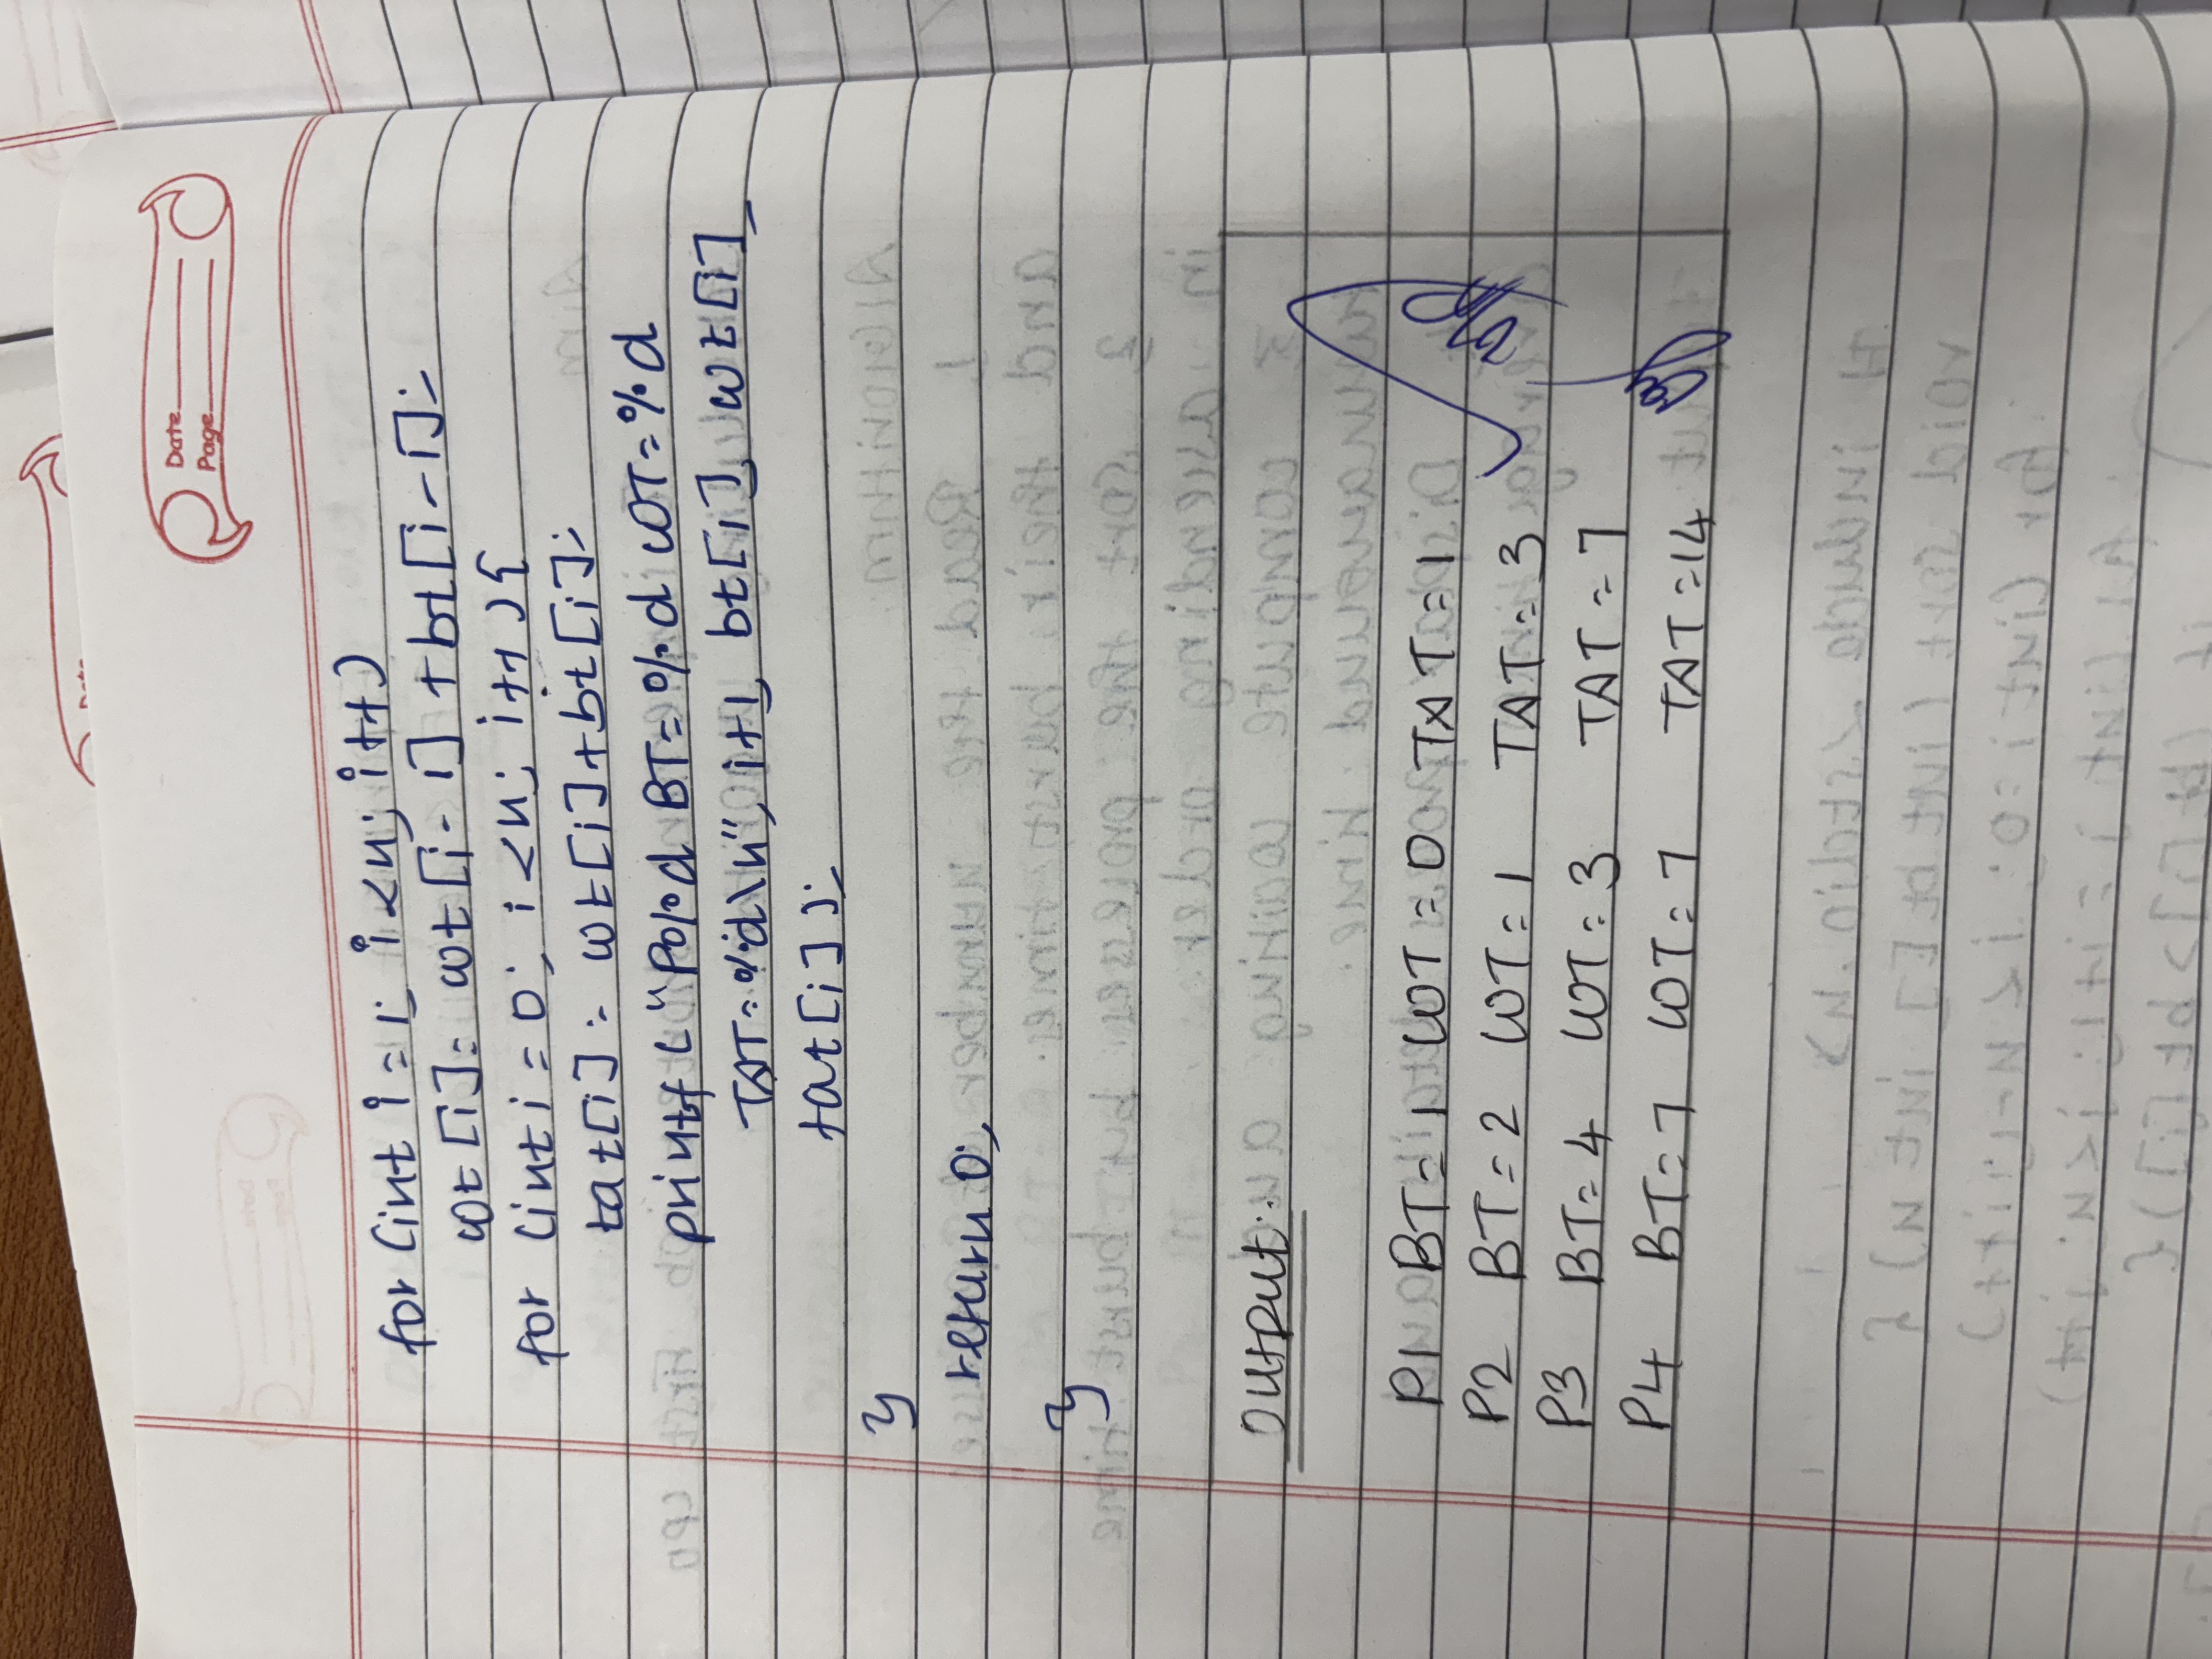 Date
Page
for (int i = 1; i < n; i++)
wt[i] = wt[i-1] + bt[i-1];
for (int i = 0; i < n; i++) {
tat[i] = wt[i] + bt[i];
printf ("P%d BT=%d WT=%d
TAT=%d\n", i+1, bt[i], wt[i],
tat[i]);
}
return 0;
}
Output:
P1 BT=1 WT=0 TAT=1
P2 BT=2 WT=1 TAT=3
P3 BT=4 WT=3 TAT=7
P4 BT=7 WT=7 TAT=14